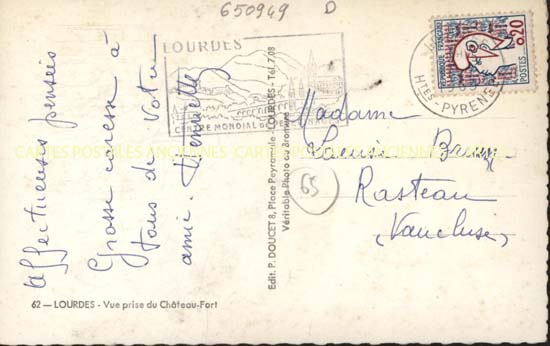 650949 D
LOURDES
CENTRE MONDIAL DE
RÉPUBLIQUE FRANÇAISE
0,20
POSTES
HTES-PYRENEES
Affectueuses pensées
Grosse caresse à
tous de votre
amie. Henriette
Edit. P. DOUCET 8, Place Peyramale - LOURDES - Tél. 7.08
Véritable Photo au Bromure
Madame
Rasteau
(Vaucluse)
65
CARTES POSTALES ANCIENNES
62 — LOURDES - Vue prise du Château-Fort